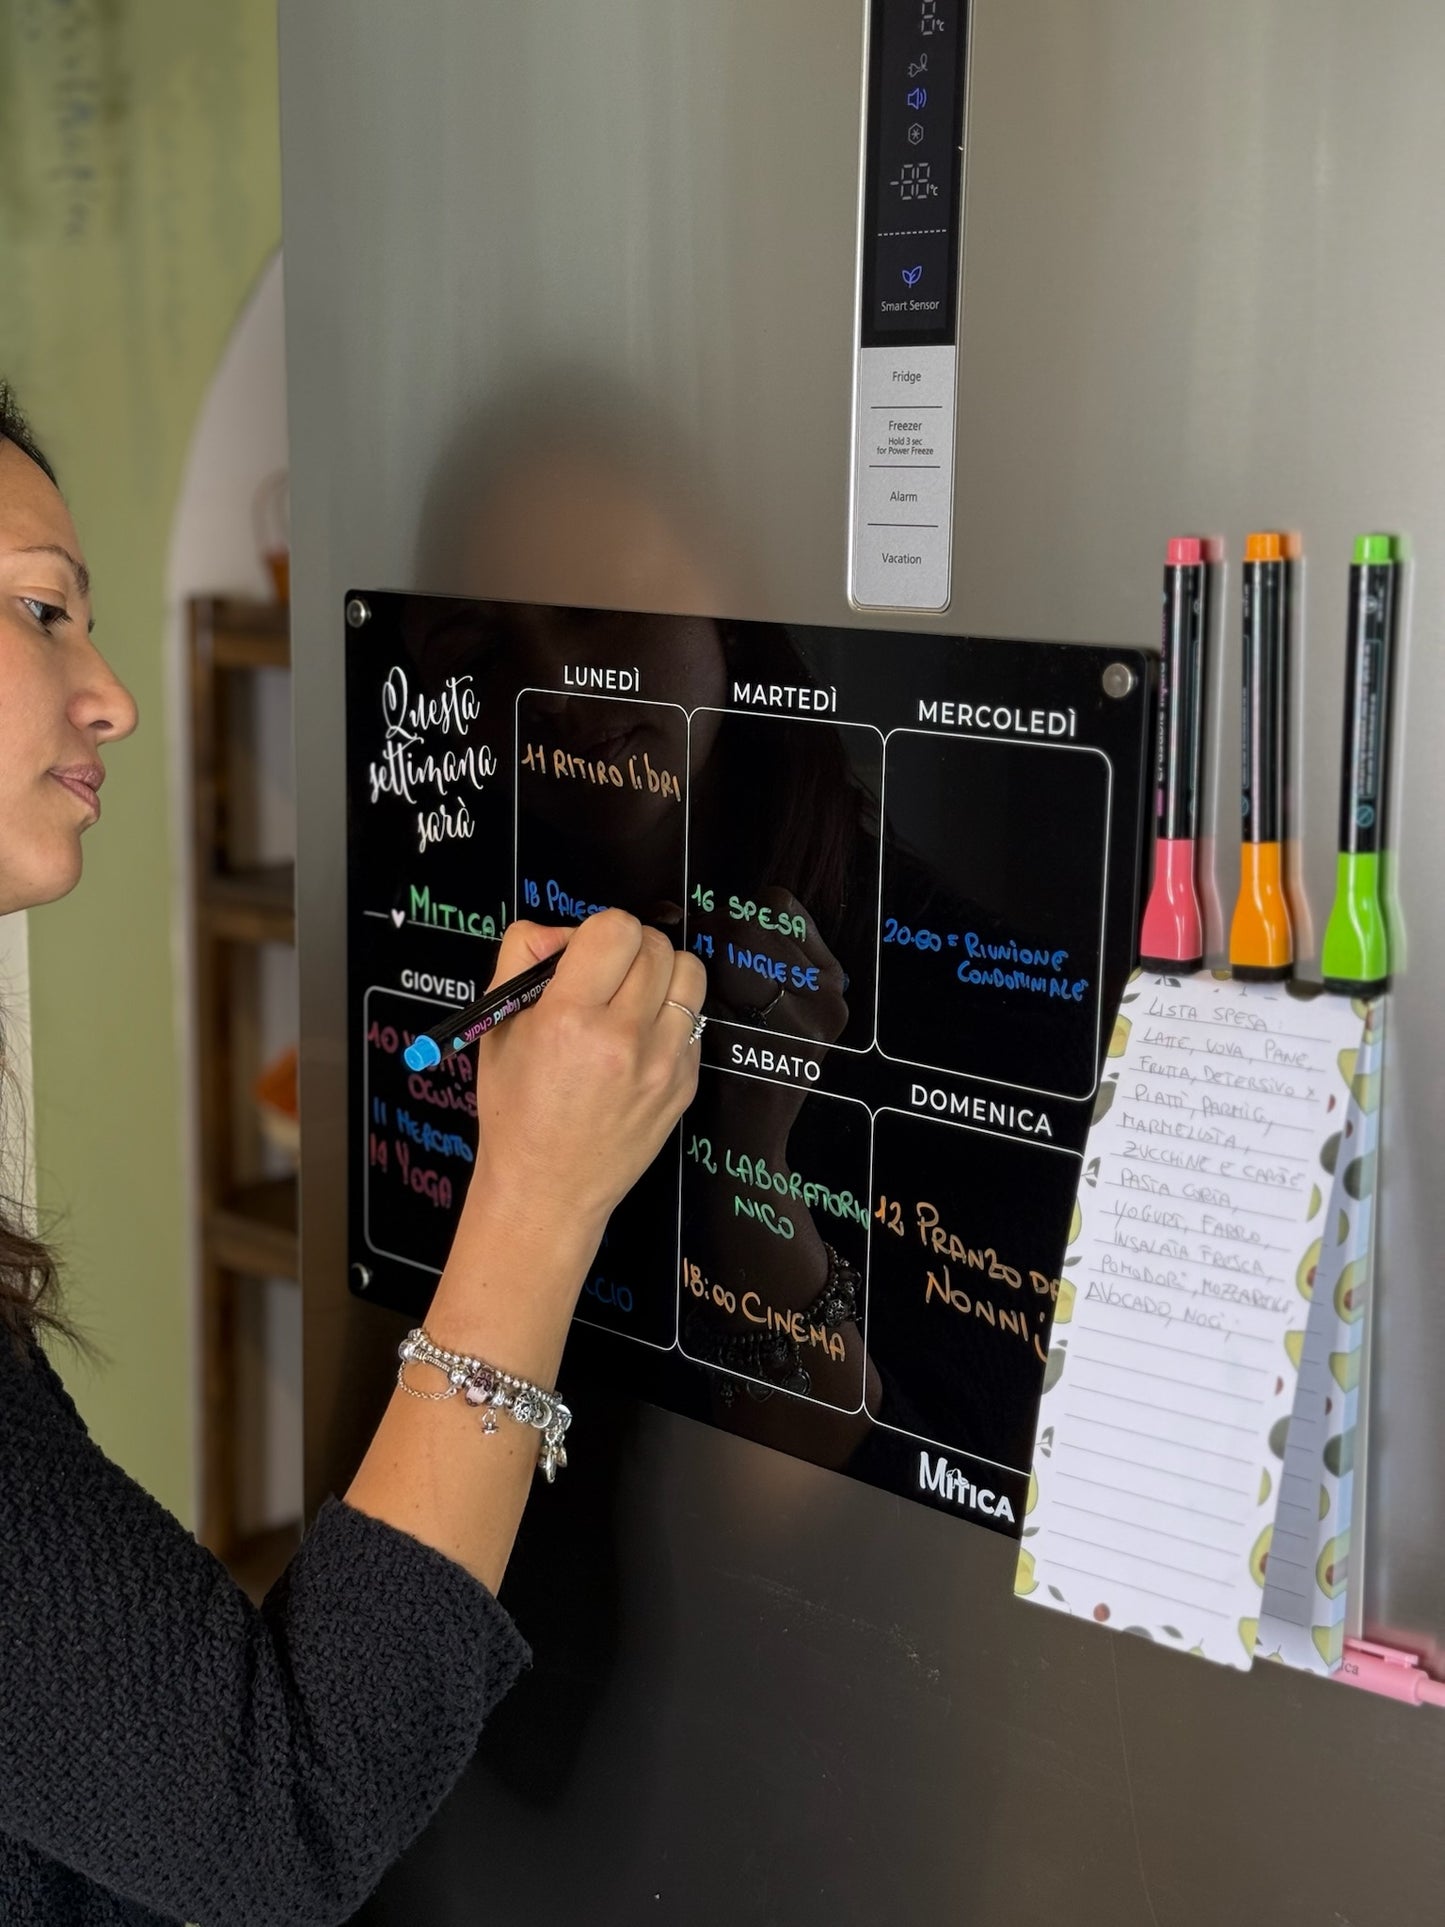 Smart Sensor
Fridge
Freezer
Hold 3 sec
for Power Freeze
Alarm
Vacation
Questa
settimana
sarà
MITICA!
LUNEDÌ
11 RITIRO libRI
18
MARTEDÌ
16 SPESA
17 INGLESE
MERCOLEDÌ
RIUNIONE
CONDOMINIALE
GIOVEDÌ
10
11 MERCATO
YOGA
SABATO
12 LABORATORIO
NICO
18:00 CINEMA
DOMENICA
12 PRANZO
NONNI
MITICA
liquid chalk
LISTA SPESA:
LATTE, UOVA, PANE,
FRUTTA, DETERSIVO X
PIATTI, PARMIG,
MARMELLATA,
ZUCCHINE E CAROTE
PASTA CORTA,
YOGURT, FARRO,
INSALATA FRESCA,
POMODORI, MOZZARELLE,
AVOCADO, NOCI,